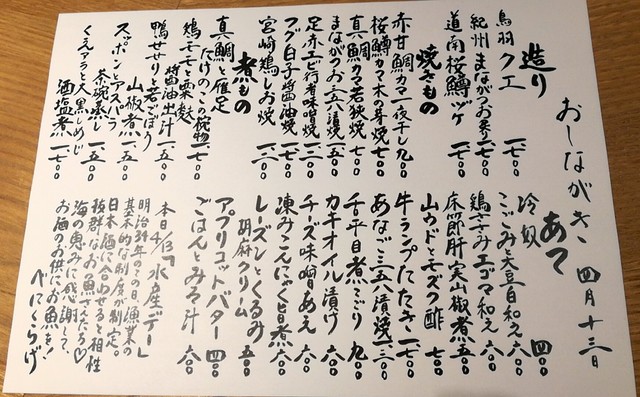 おしながき 四月十三日
造り
鳥羽クエ 一、七〇〇
紀州まながつお炙り 一、七〇〇
道南桜鱒ヅケ 一、七〇〇
焼きもの
赤甘鯛カマ一夜干し 九〇〇
桜鱒カマ木の芽焼 七〇〇
真鯛カマ若狭焼 七〇〇
まながつお三五八漬焼 一、五〇〇
足赤エビ行者味噌焼 一、三〇〇
フグ白子醤油焼 一、七〇〇
宮崎鶏しお焼 一、二〇〇
煮もの
真鯛と雁足
たけのこの椀物 一、七〇〇
鶏モモと粟麩
醤油出汁 一、七〇〇
鴨せせりと若ごぼう
山椒煮 一、五〇〇
スッポンとアスパラ
茶碗蒸し 一、五〇〇
くえアラと大黒しめじ
酒塩煮 一、七〇〇
あて
冷奴 四〇〇
こごみ大豆白和え 六〇〇
鶏ささみエゴマ和え 六〇〇
床節肝実山椒煮 五〇〇
山ウドとモズク酢 七〇〇
牛ランプたたき 一、七〇〇
あなご三五八漬焼 一、三〇〇
舌平目煮こごり 九〇〇
カキオイル漬け 六〇〇
チーズ味噌あえ 六〇〇
凍みこんにゃく旨煮 六〇〇
レーズンとくるみ
胡麻クリーム 五〇〇
アプリコットバター 四〇〇
ごはんとみそ汁 六〇〇
本日4/13「水産デー」
明治34年のこの日、漁業の
基本的な制度が制定。
日本酒に合わせると相性
抜群なお魚さんたち♡
海の恵みに感謝して、
お酒のお供にお魚を!
べにくらげ